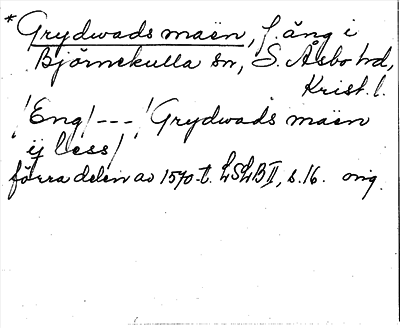 * Grydwads maën, f. äng i
Björnekulla sn, S. Åsbo hd,
Krist. l.
/Eng/ --- /Grydwads maën
ij less/
förra delen av 1570-t. LSLB II, s. 16. orig.